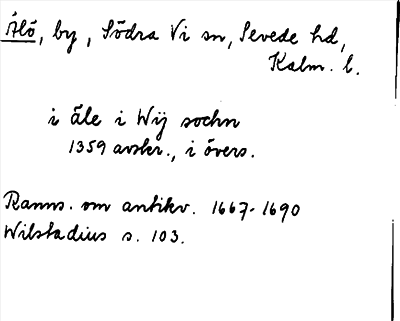 Ålö, by, Södra Vi sn, Sevede hd,
Kalm. l.
i åle i Wij sochn
1359 avskr., i övers.
Ranns. om antikv. 1667-1690
Wilstadius s. 103.